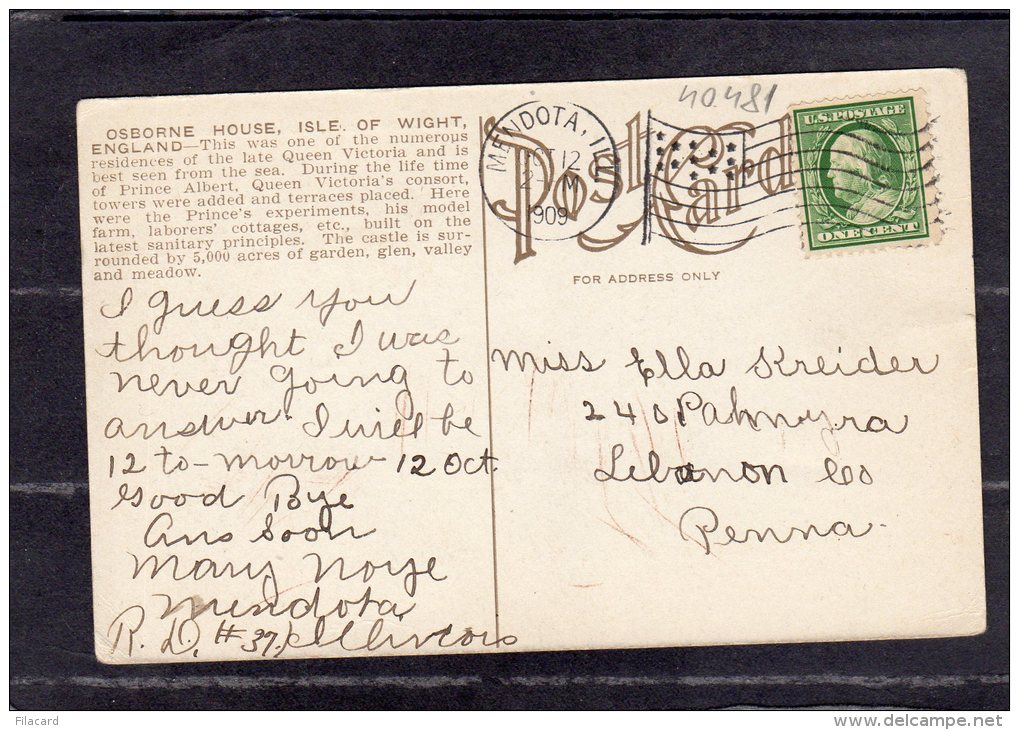 40.481
MENDOTA, ILL
OCT 12
2 M
1909
Post Card
U.S. POSTAGE
ONE CENT
OSBORNE HOUSE, ISLE OF WIGHT,
ENGLAND—This was one of the numerous
residences of the late Queen Victoria and is
best seen from the sea. During the life time
of Prince Albert, Queen Victoria's consort,
towers were added and terraces placed. Here
were the Prince's experiments, his model
farm, laborers' cottages, etc., built on the
latest sanitary principles. The castle is sur-
rounded by 5,000 acres of garden, glen, valley
and meadow.
FOR ADDRESS ONLY
I guess you
thought I was
never going to
answer. I will be
12 to-morrow 12 Oct
Good Bye
Ans Soon
Mary Noye
Mendota
R.D. #37, Illinois
Miss Ella Kreider
240 Palmyra
Lebanon Co
Penna
Filacard
www.delcampe.net